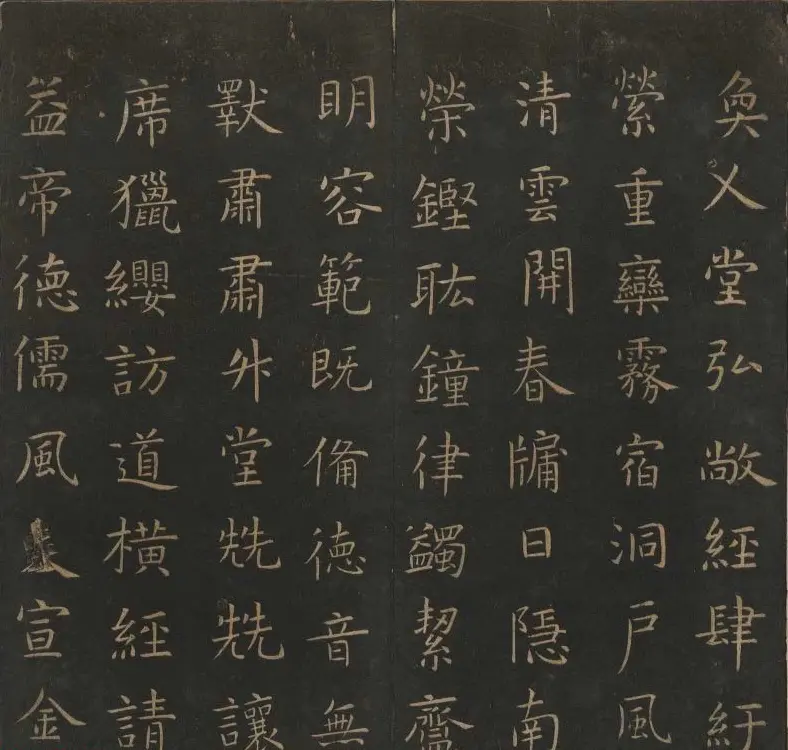 奐乂堂弘敞經肆紆
縈重欒霧宿洞戶風
清雲開春牖日隱南
榮鏗耾鐘律蠲絜齍
明容範既備德音無
斁肅肅升堂兟兟讓
席獵纓訪道橫經請
益帝德儒風宣金